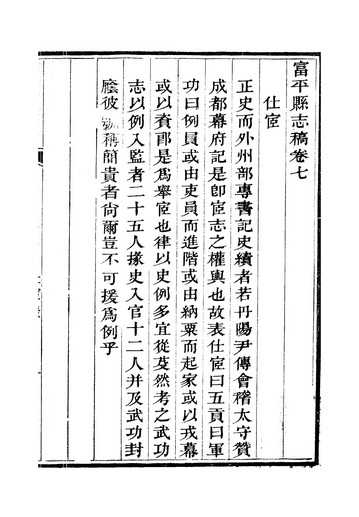 富平縣志稿卷七
仕宦
正史而外州部專書記史績者若丹陽尹傳會稽太守贊
成都幕府記是卽宦志之權輿也故表仕宦曰五貢曰軍
功曰例員或由吏員而進階或由納粟而起家或以戎幕
或以賚郎是爲舉宦也律以史例多宜從芟然考之武功
志以例入監者二十五人掾史入官十二人并及武功封
廕彼號稱簡貴者尙爾豈不可援爲例乎